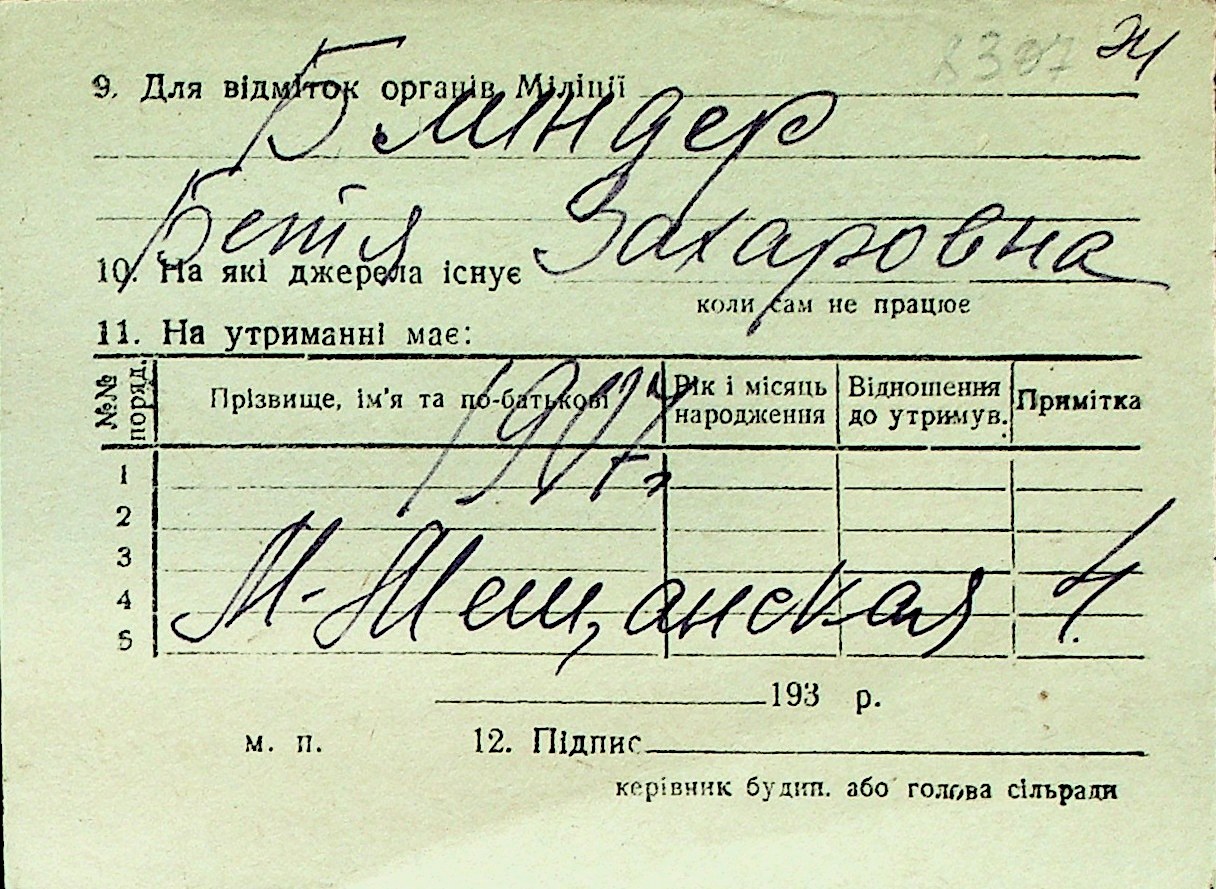 8397 Ж
9. Для відміток органів Міліції
Блиндер
Бетя Захаровна
10. На які джерела існує
коли сам не працює
11. На утриманні має:
№№ поряд. Прізвище, ім'я та по-батькові Рік і місяць народження Відношення до утримув. Примітка
1907 г.
1
2
3
4
5
М-Мещанская 4.
193 р.
м. п. 12. Підпис
керівник будин. або голова сільради